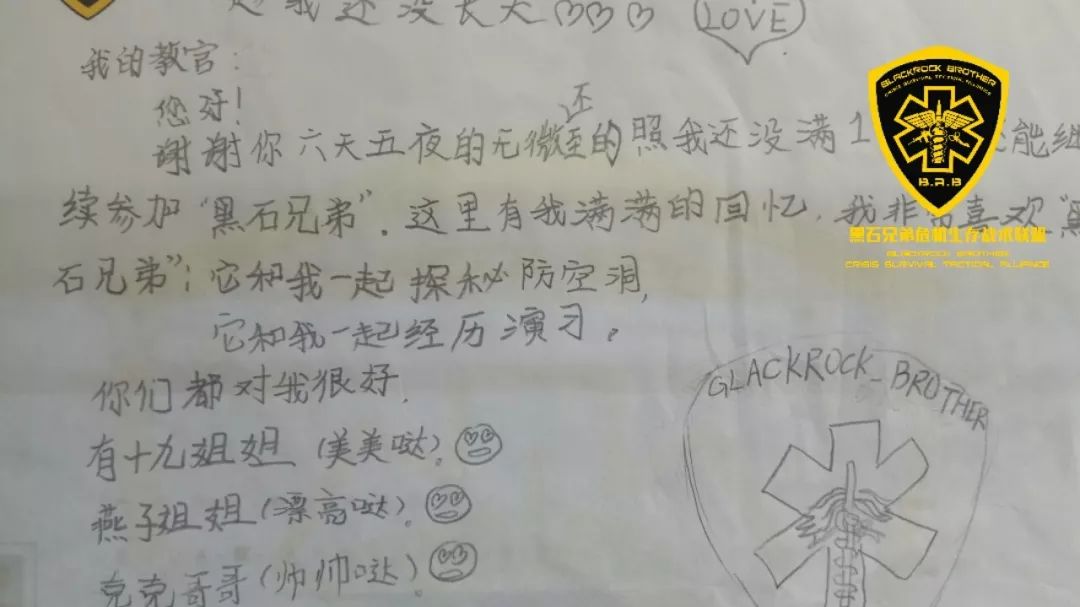 我还没长大
LOVE
我的教官:
您好!
还
谢谢你六天五夜的无微至的照我还没满1能继
续参加"黑石兄弟"。这里有我满满的回忆,我非常喜欢"黑
石兄弟";它和我一起探秘防空洞,
它和我一起经历演习。
你们都对我很好,
有十九姐姐(美美哒)。
燕子姐姐(漂亮哒)。
克克哥哥(帅帅哒)。
GLACKROCK_BROTHER
BLACKROCK BROTHER
CRISIS SURVIVAL TACTICAL ALLIANCE
B.R.B
黑石兄弟危机生存战术联盟
BLACKROCK BROTHER
CRISIS SURVIVAL TACTICAL ALLIANCE